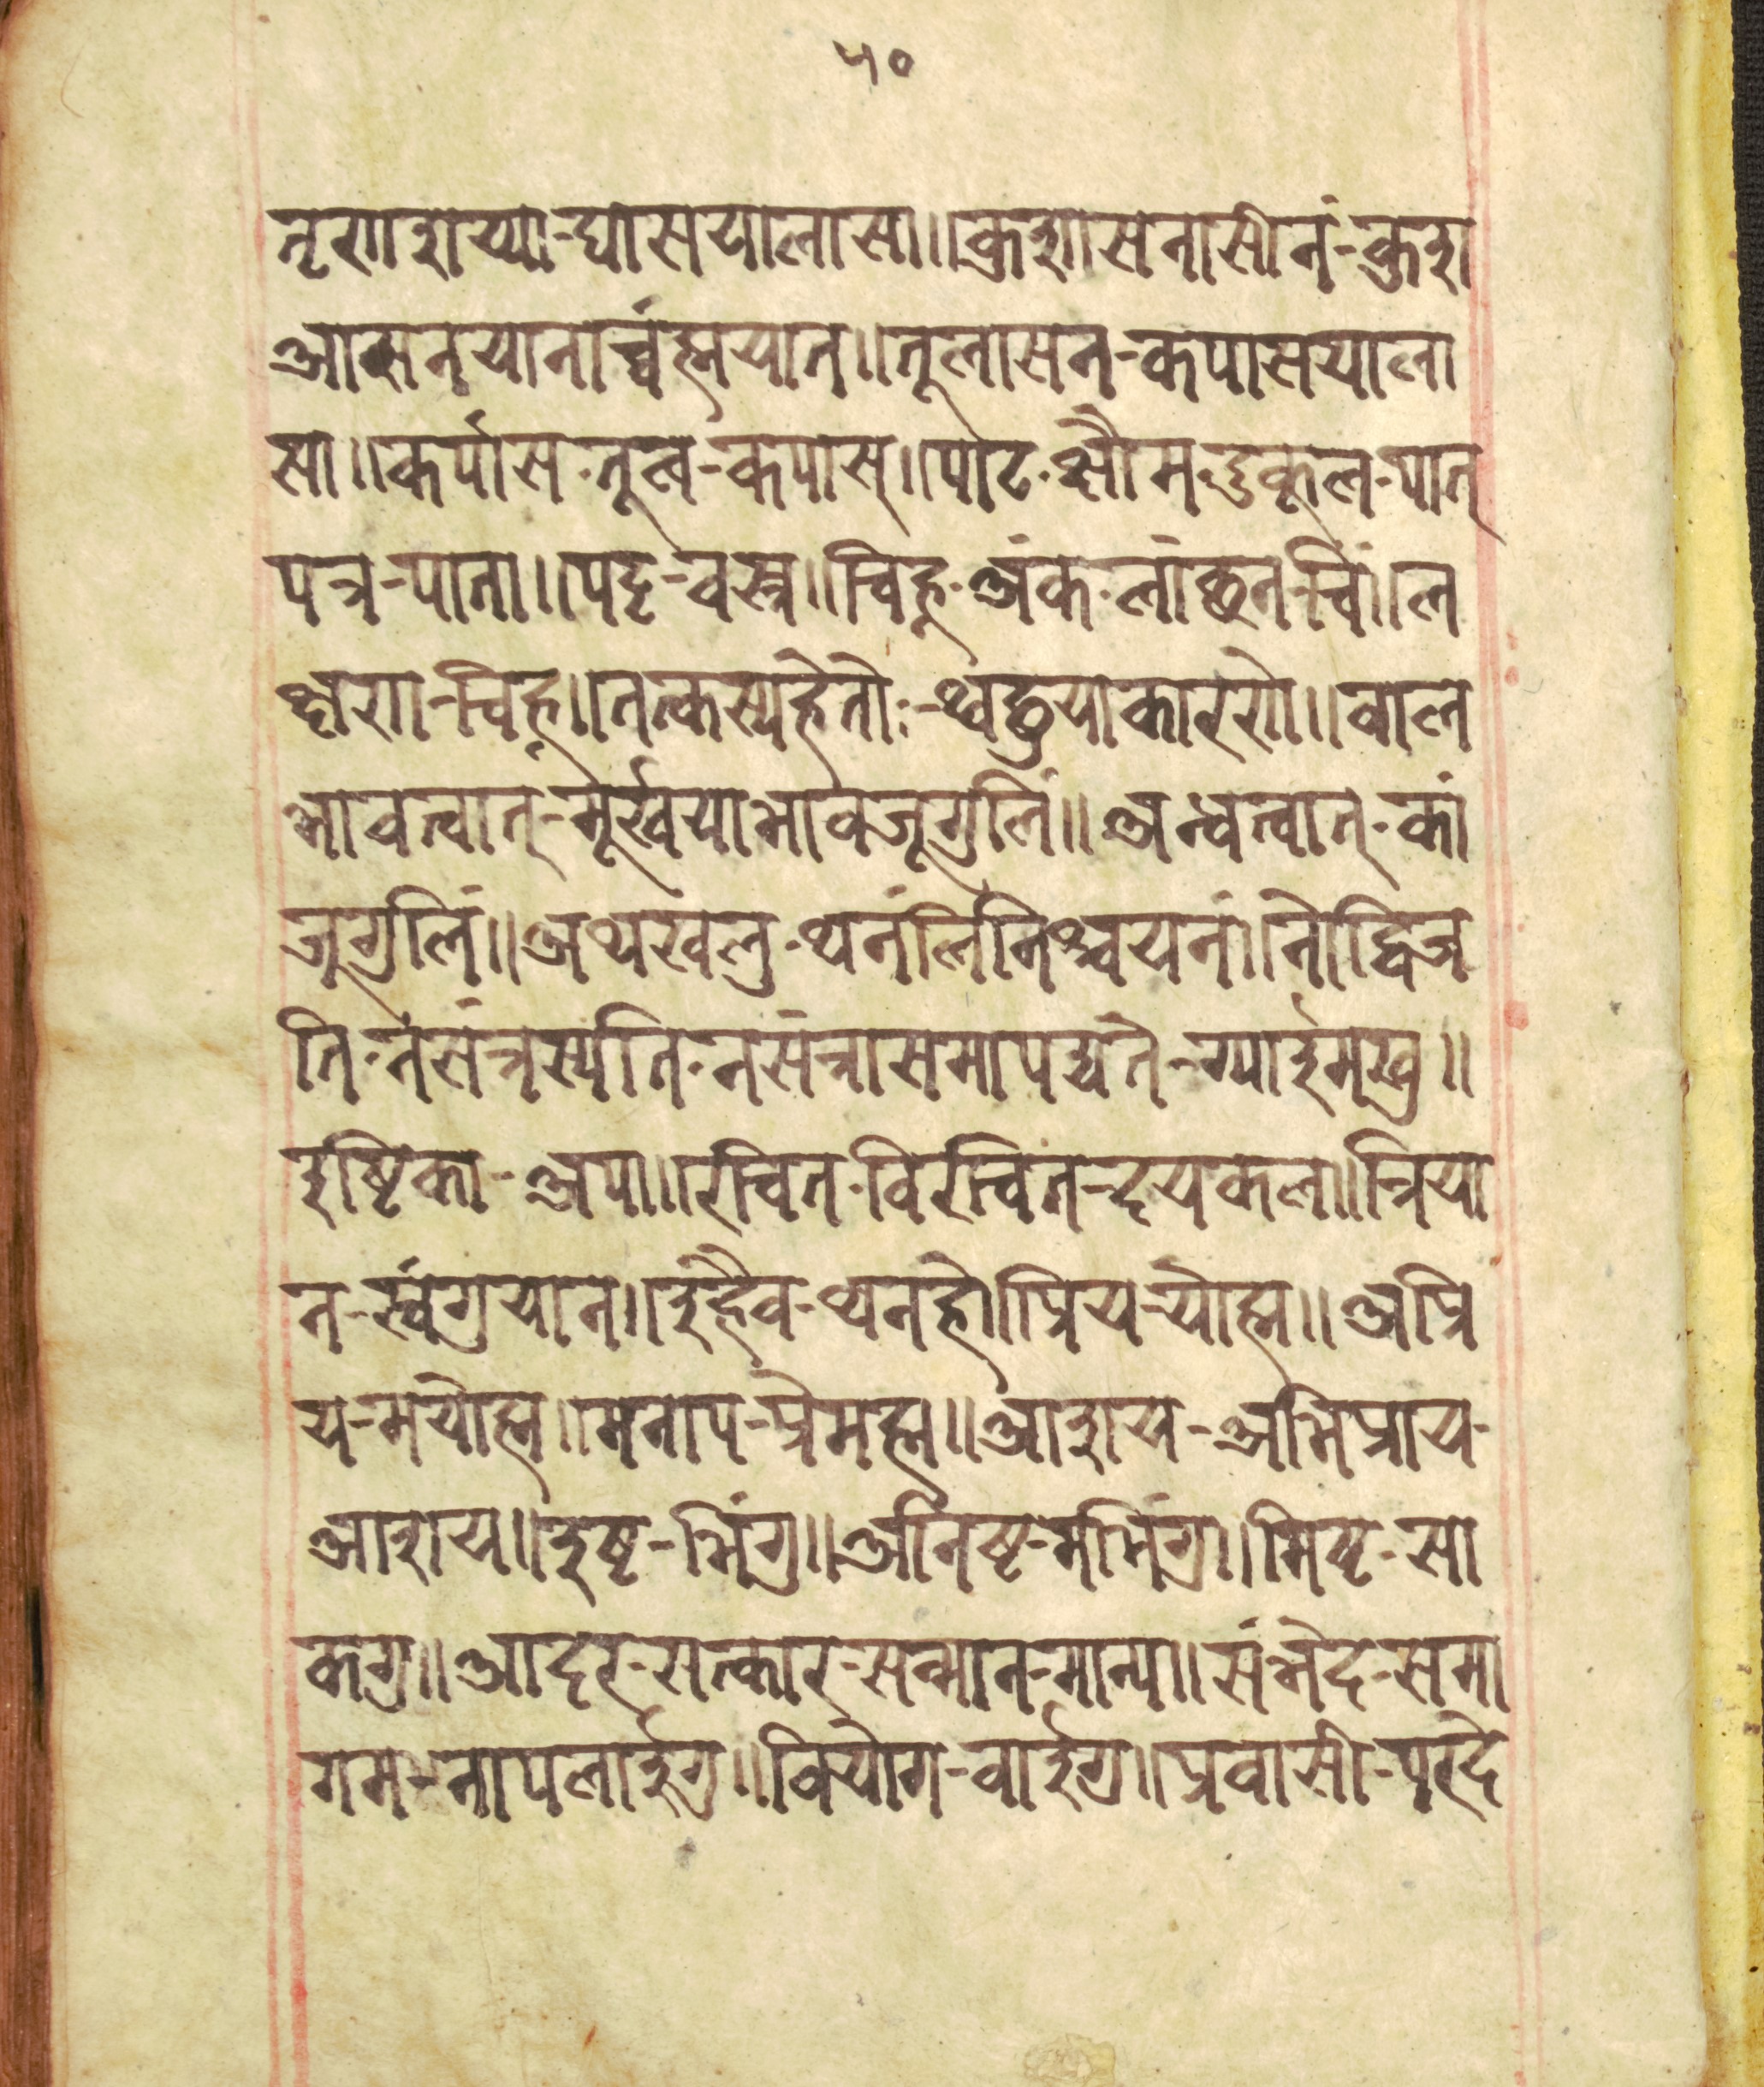 ५०
तृणशय्या-घासयालासा॥कुशासनासीनं-कुश
आसनयानाच्वंह्मयान॥तूलासन-कपासयाला
सा॥कर्पास·तूल-कपास्॥पाट·क्षौम·दुकूल-पात्
पत्र-पाता॥पट्ट-वस्त्र॥चिह्न·अंक·लांछन-चिं॥ल
क्षण-चिह्न॥तत्कस्यहेतोः-थ्वछुयाकारणे॥बाल
भावत्वात्-मूर्खयाभावजूगुलिं॥अन्धत्वात्-कां
जूगुलिं॥अथखलु-थनंलिनिश्चयनं॥नोद्विज
ति·नसंत्रस्यति·नसंत्रासमापद्यते-ग्याइमखु॥
इष्टिका-अपा॥रचित·विरचित-दयकल॥त्रिया
न-स्वंगुयान॥इहैव-थ्यनहे॥प्रिय-योह्म॥अप्रि
य-मयोह्म॥मनाप-प्रेमह्म॥आशय-अभिप्राय-
आशय॥इष्ट-भिंगु॥अनिष्ट-मभिंगु॥मिष्ट-सा
कगु॥आदर-सत्कार-सन्मान-मान्य॥संभेद-समा
गम-नापलाईगु॥वियोग-वाईगु॥प्रवासी-परदे